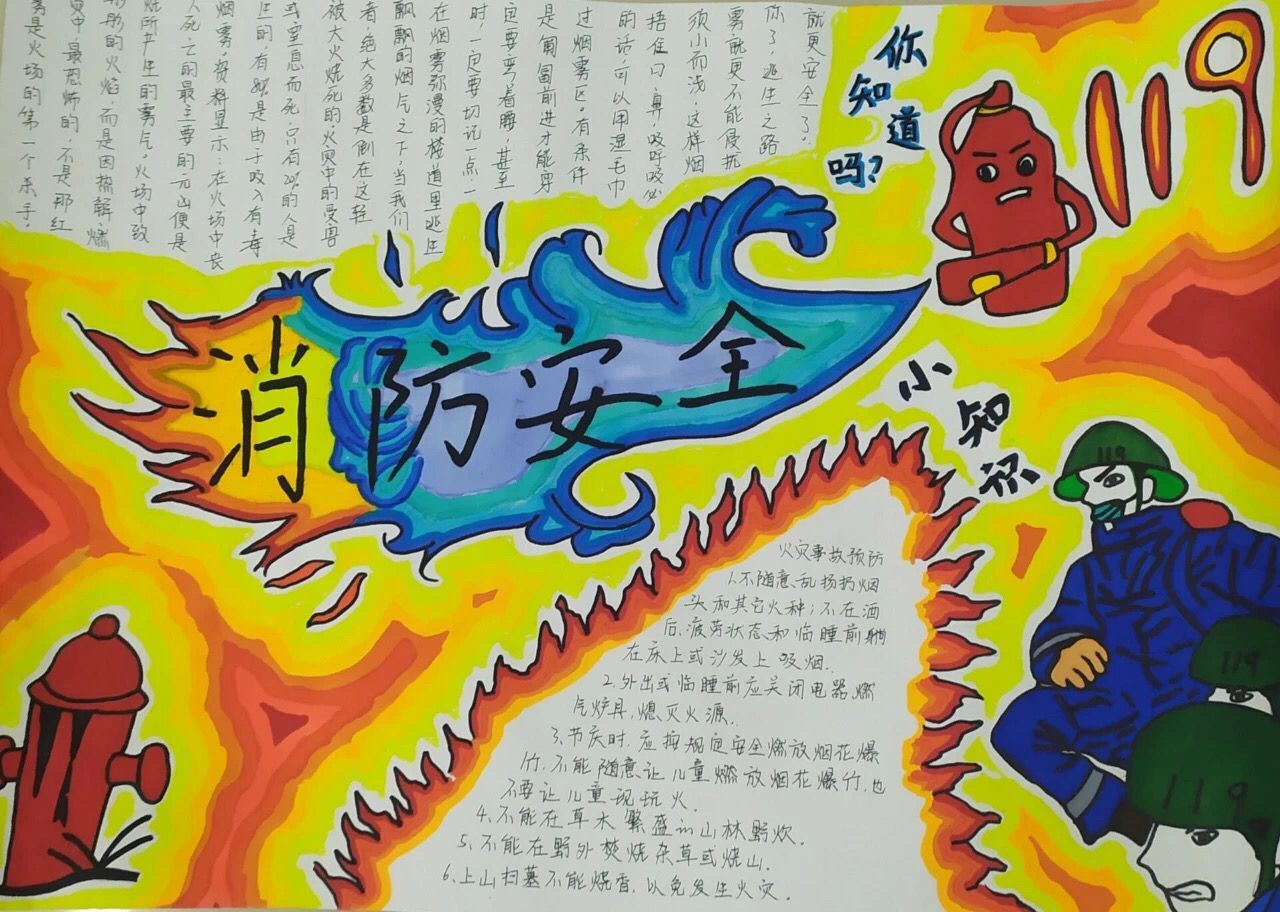 消防安全
你知道吗？
119
雾是火场的第一个杀手.
灾中,最恐怖的,不是那红
彤彤的火焰,而是因热解、燃
烧所产生的雾气。火场中致
人死亡的最主要的元凶便是
烟雾,资料显示:在火场中丧
生的,有80%是由于吸入有毒
或窒息而死,只有20%的人是
被大火烧死的,火灾中的受害
者,绝大多数是倒在这轻
飘飘的烟气之下,当我们
在烟雾弥漫的楼道里逃生
时,一定要切记一点,一
定要弯着腰,甚至
是匍匐前进才能穿
过烟雾区,有条件
的话,可以用湿毛巾
捂住口、鼻,吸呼吸必
须小而浅,这样烟
雾就更不能侵扰
你了,逃生之路
就更安全了.
小知识
火灾事故预防
1.不随意乱扬扔烟
头和其它火种；不在酒
后、疲劳状态和临睡前躺
在床上或沙发上吸烟.
2.外出或临睡前应关闭电器、燃
气炉具,熄灭火源.
3.节庆时,应按规定安全燃放烟花爆
竹.不能随意让儿童燃放烟花爆竹,也
不要让儿童现玩火.
4.不能在草木繁盛的山林野炊.
5.不能在野外焚烧杂草或烧山.
6.上山扫墓不能烧香,以免发生火灾.
119
119
119